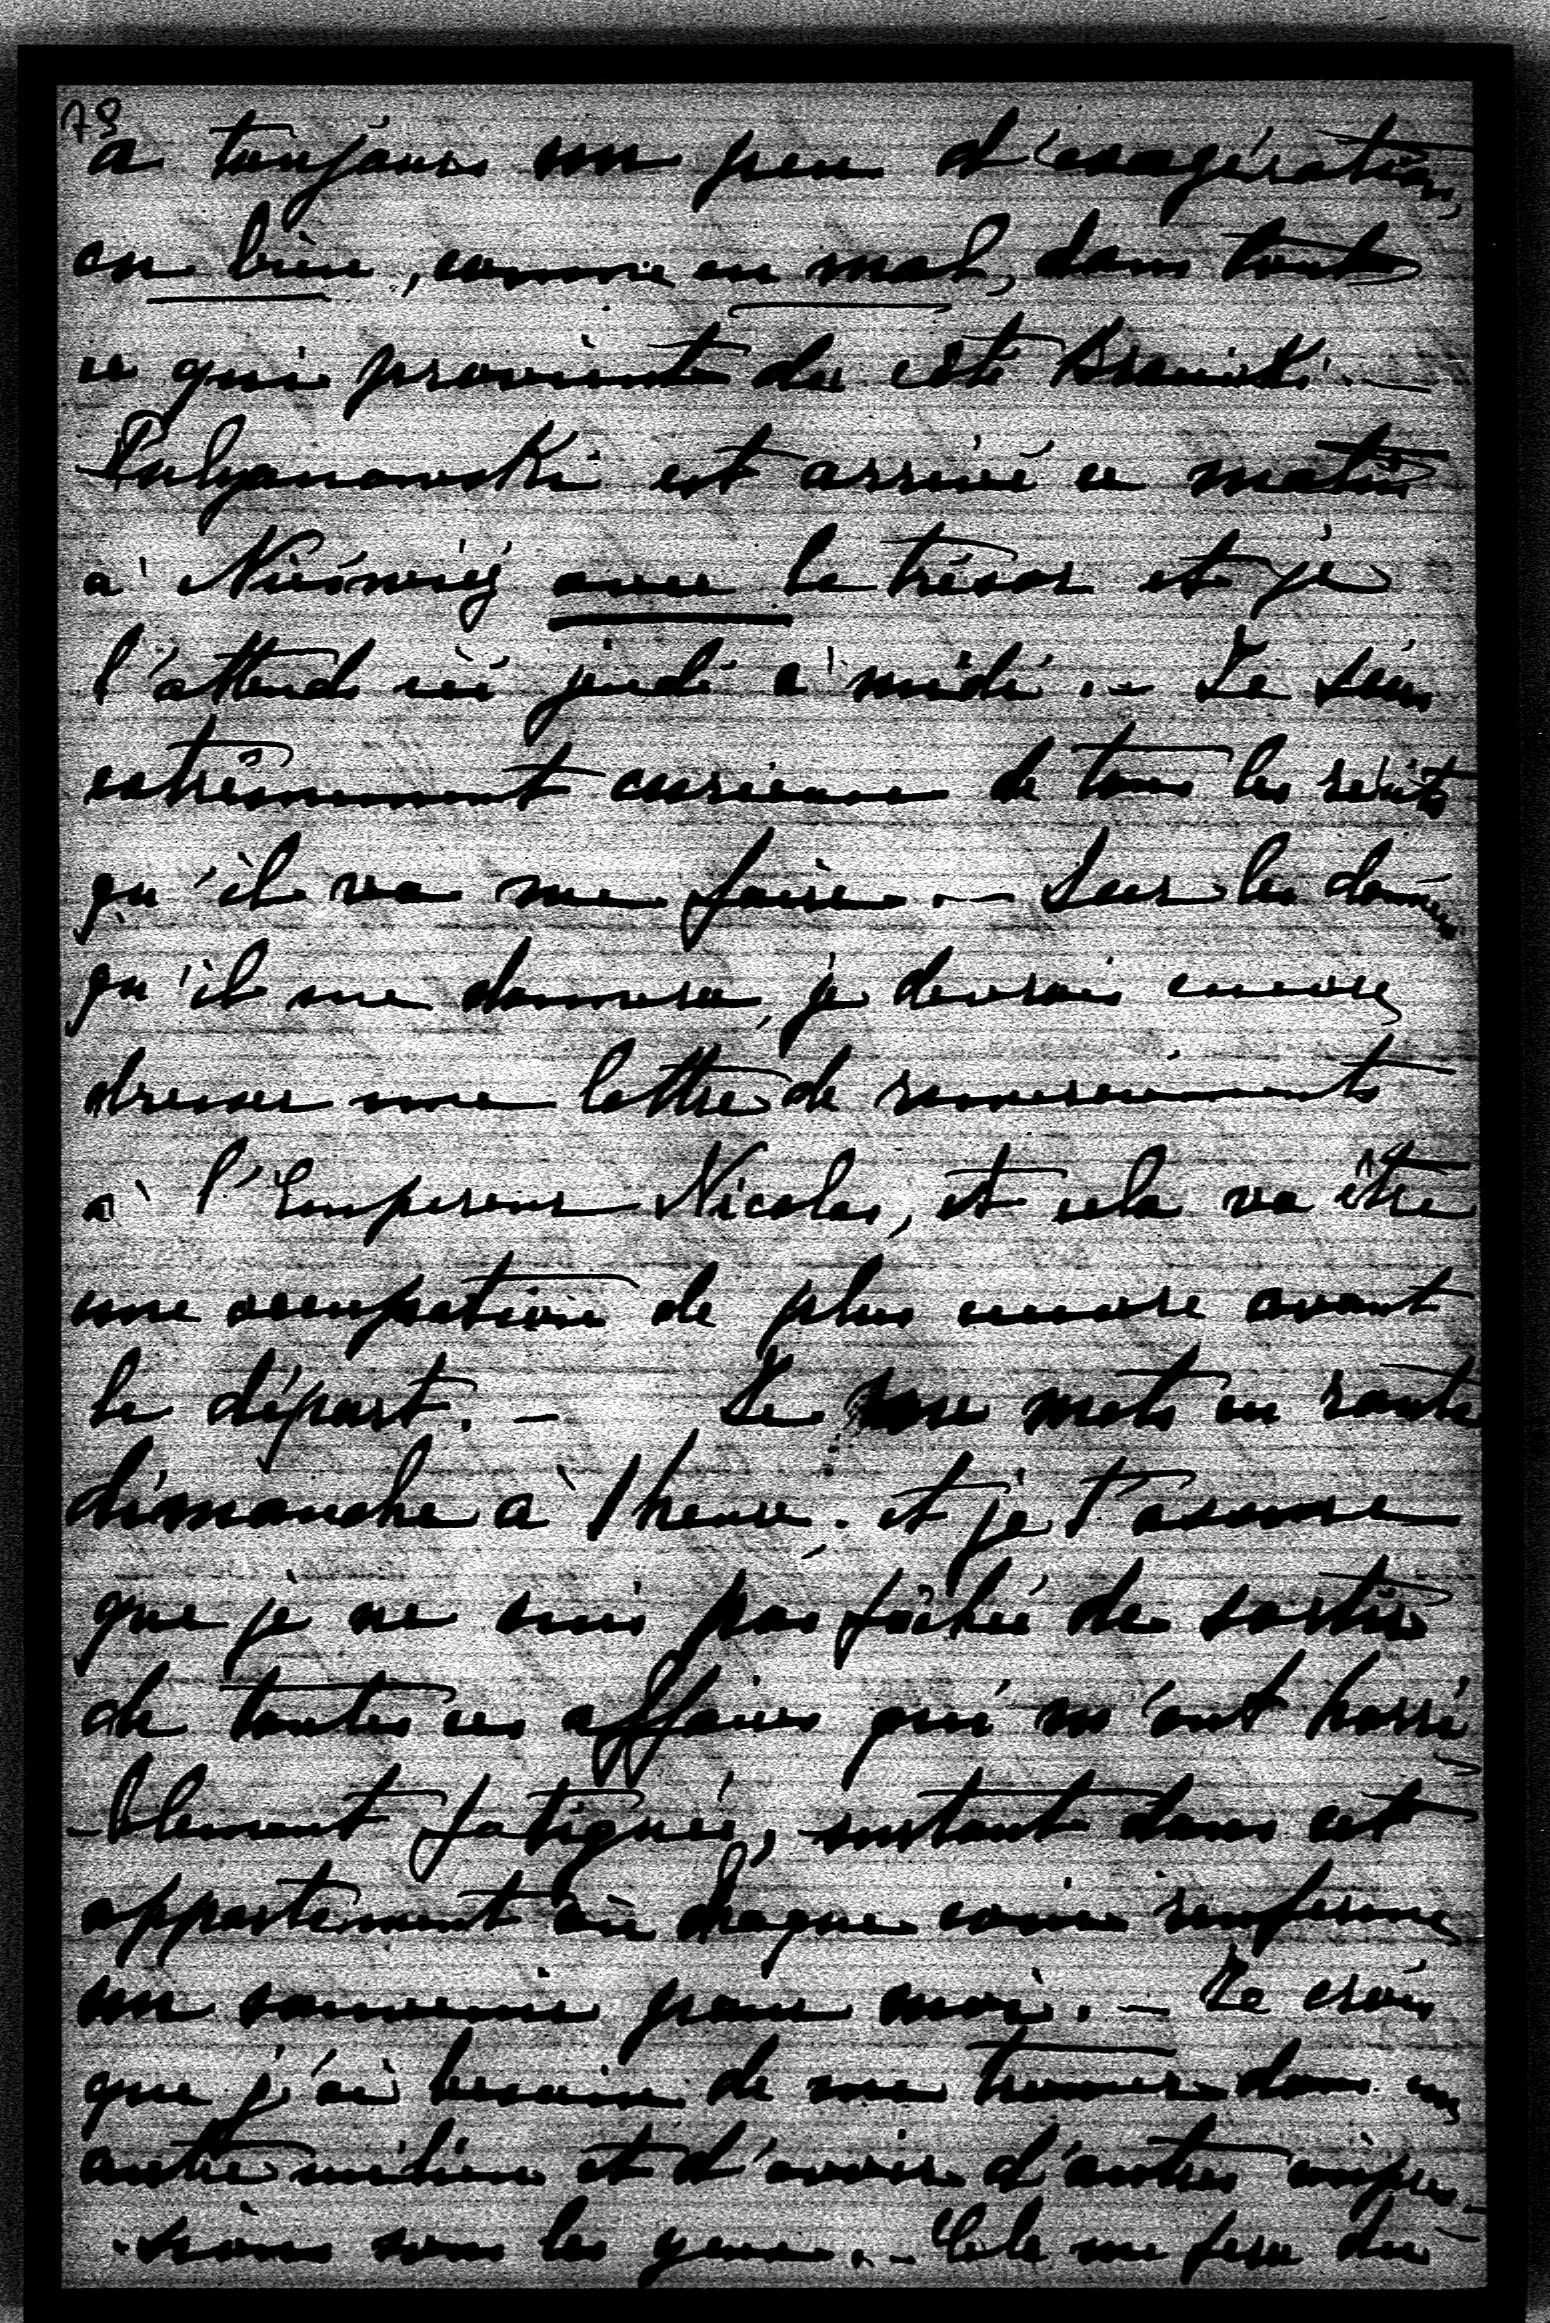 78
a toujours un peu d'exagération,
en bien, comme en mal, dans tout
ce qui provient du côté Branicki. —
Pulyanowski est arrivé ce matin
à Nieśwież avec le trésor et je
l'attends ici jeudi à midi. — Je suis
extrêmement curieuse de tous les récits
qu'il va me faire. — Sur les données
qu'il me donnera, je devrais encore
dresser une lettre de remerciements
à l'Empereur Nicolas, et cela va être
une occupation de plus encore avant
le départ. — Je me mets en route
dimanche à 1 heure. et je t'assure
que je ne suis pas fâchée de sortir
de toutes ces affaires qui m'ont horri
-blement fatiguée, surtout dans cet
appartement où chaque coin renferme
un souvenir pour moi. — Je crois
que j'ai besoin de me trouver dans un
autre milieu et d'avoir d'autres impres-
-sions sous les yeux. — Cela me fera du